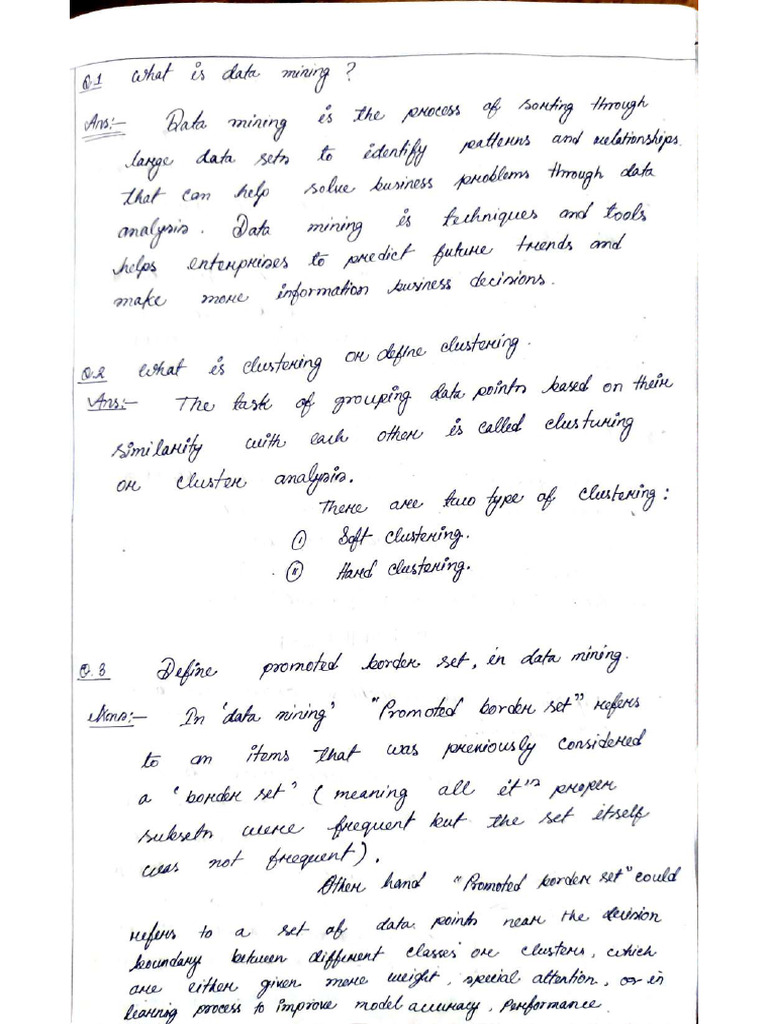 Q.1 What is data mining ?
Ans:- Data mining is the process of sorting through
large data sets to identify patterns and relationships.
that can help solve business problems through data
analysis. Data mining is techniques and tools
helps enterprises to predict future trends and
make more information business decisions.
Q.2 What is clustering or define clustering.
Ans:- The task of grouping data points based on their
similarity with each other is called clusturing
or cluster analysis.
There are two type of clustering :
(I) Soft clustering.
(II) Hard clustering.
Q.3 Define promoted border set, in data mining.
Ans:- In 'data mining' "Promoted border set" refers
to an items that was previously considered
a 'border set' (meaning all it's proper
subsets were frequent but the set itself
was not frequent).
Other hand "Promoted border set" could
refers to a set of data points near the decision
boundary between different classes or clusters, which
are either given more weight, special attention, or in
learning process to improve model accuracy, Performance